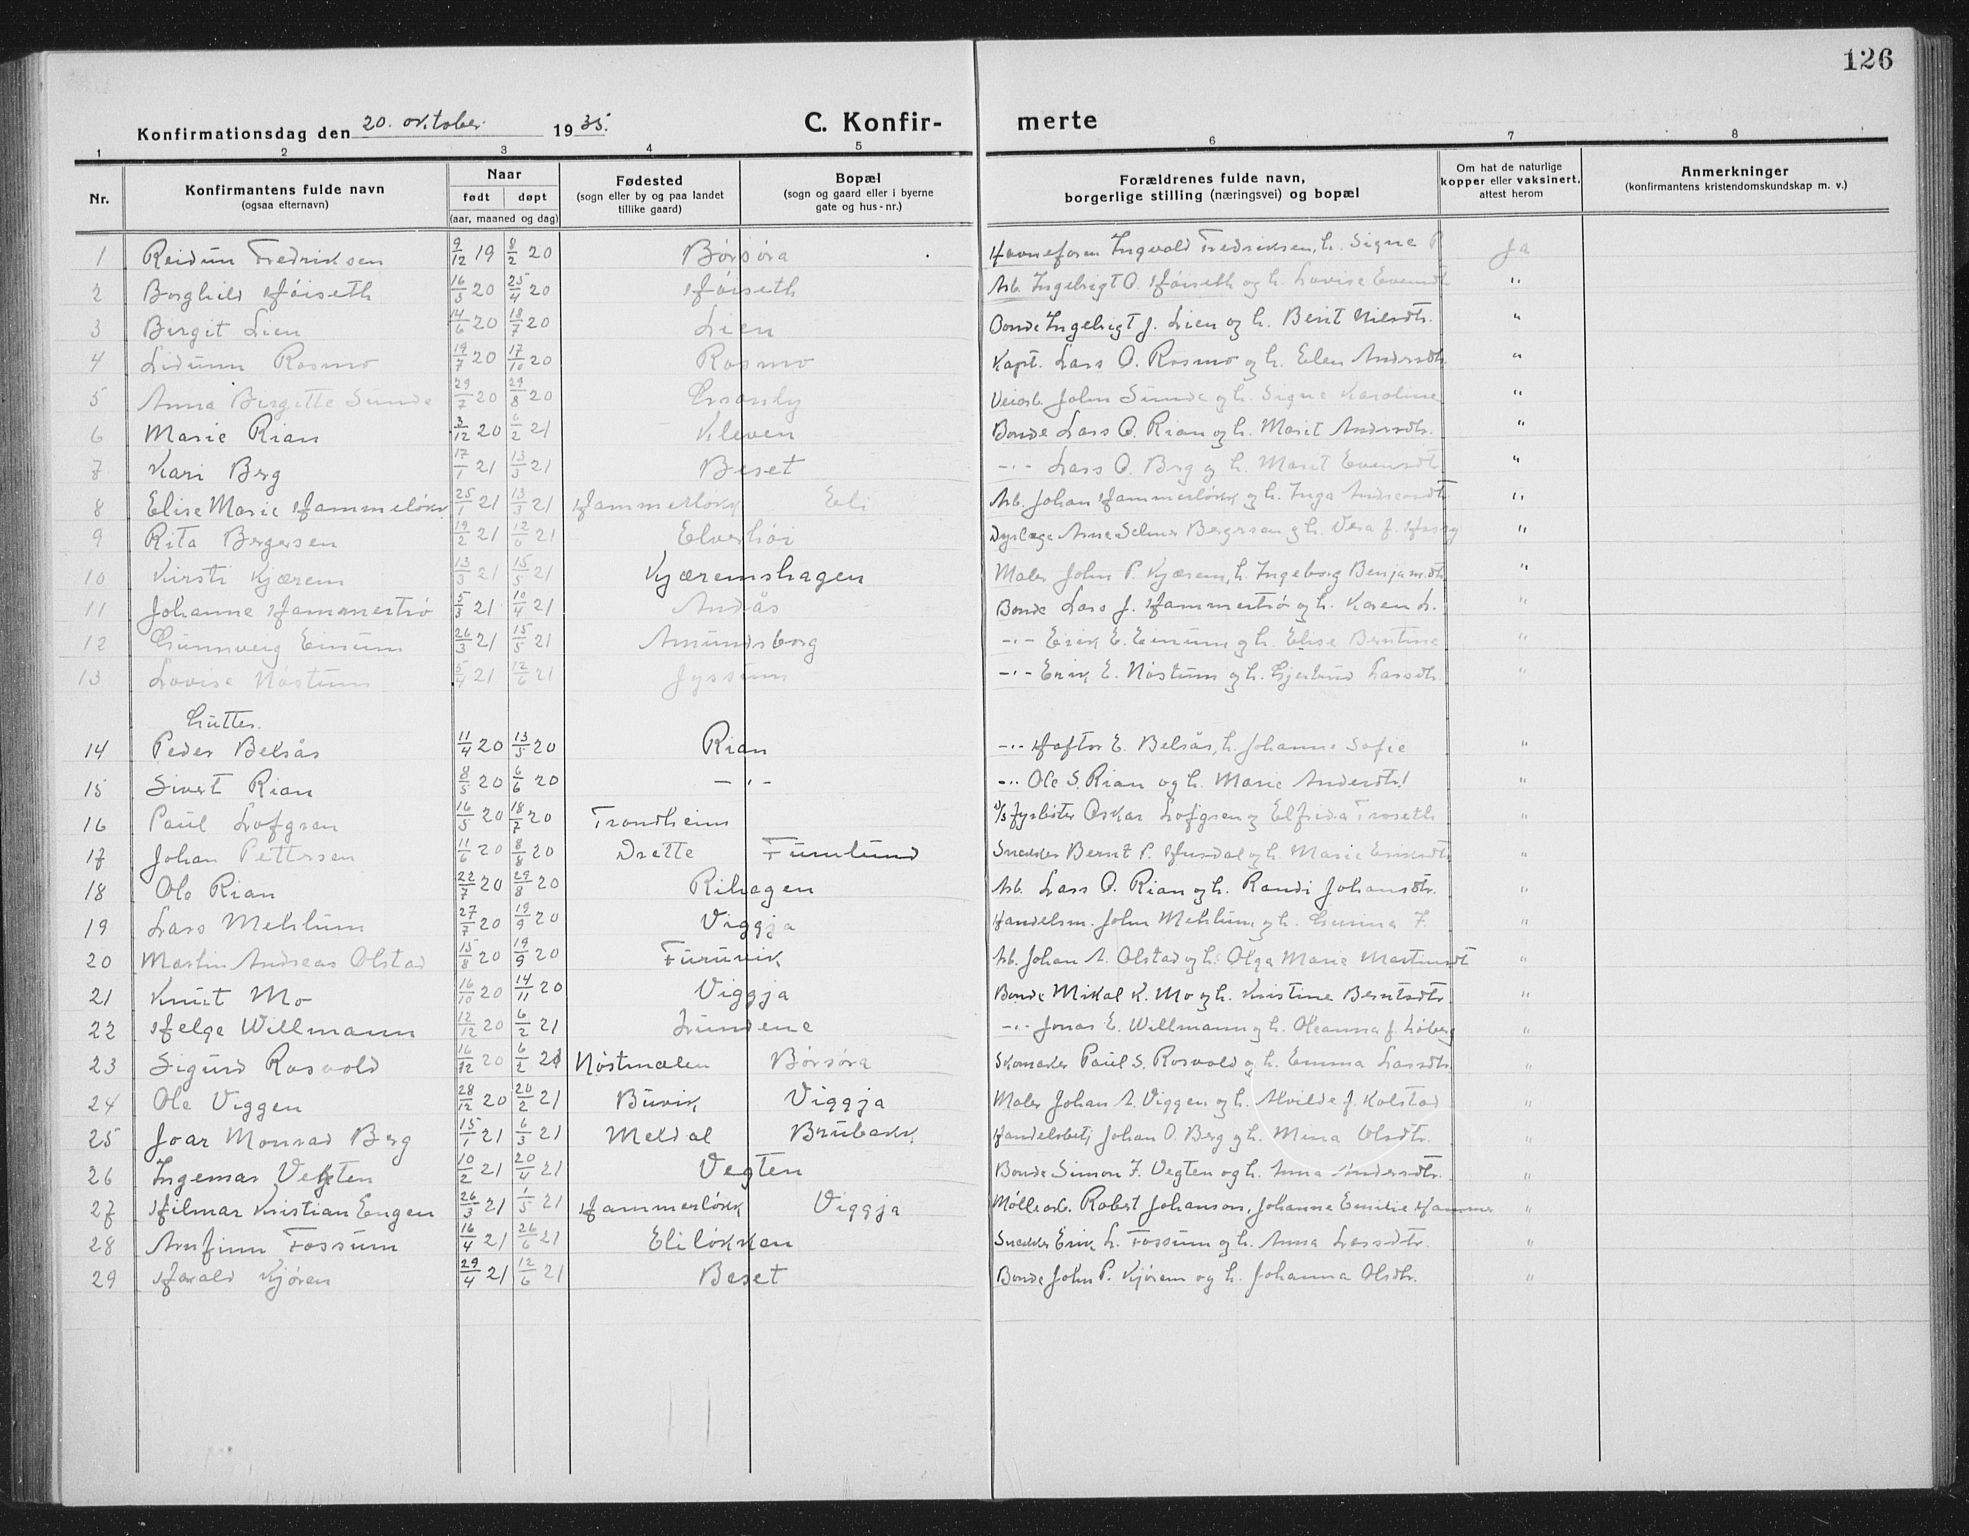 126
Konfirmationsdag den 20. oktober 1935. C. Konfir- merte
1 2 3 4 5 6 7 8
Nr. Konfirmantens fulde navn (ogsaa efternavn) Naar født døpt (aar, maaned og dag) Fødested (sogn eller by og paa landet tillike gaard) Bopæl (sogn og gaard eller i byerne gate og hus-nr.) Forældrenes fulde navn, borgerlige stilling (næringsvei) og bopæl Om hat de naturlige kopper eller vaksinert, attest herom Anmerkninger (konfirmantens kristendomskundskap m. v.)
1 Reidun Fredriksen 9/12 19 8/2 20 Børsøra Havneform Ingvald Fredriksen, h. Signe Ja
2 Borghild Høiseth 16/3 20 25/4 20 Høiseth Arb. Ingebrigt O. Høiseth og h. Lovise Evensdt "
3 Birgit Lien 14/6 20 18/7 20 Lien Bonde Ingebrigt J. Lien og h. Berit Nilsdtr. "
4 Lidunn Rosmo 19/7 20 17/10 20 Rosmo Kapt. Lars O. Rosmo og h. Elen Andersdtr. "
5 Anna Birgitte Sunde 29/7 20 29/8 20 Veiarb. John Sunde og h. Signe Karoline "
6 Marie Rian 3/12 20 6/2 21 Kleven Bonde Lars O. Rian og h. Marit Andersdtr. "
7 Kari Berg 17/1 21 13/3 21 Beset -"- Lars O. Berg og h. Marit Evensdt "
8 Elise Marie Hammerløkk 25/1 21 13/3 21 Hammerløkk Eli Arb. Johan Hammerløkk og h. Inga Andreasdt "
9 Rita Bergersen 19/2 21 21 Elverhøi Dyrlæge Arne Selmer Bergersen og h. Vera J. "
10 Kirsti Kjærem 13/3 21 15/5 21 Kjæremshagen Maler John P. Kjærem, h. Ingeborg Benjam.dtr "
11 Johanne Hammertrø 5/3 21 10/4 21 Andås Bonde Lars J. Hammertrø og h. Karen L. "
12 Gunnveig Einum 26/3 21 15/5 21 Amundsborg -"- Erik E. Einum og h. Elise Berntine "
13 Lovise Nøstum 5/4 21 12/6 21 Jyssum -"- Erik E. Nøstum og h. Gjertrud Larsdtr. "
Gutter.
14 Peder Belsås 11/4 20 13/5 20 Rian -"- Haftor E. Belsås, h. Johanne Sofie "
15 Sivert Rian 8/5 20 6/6 20 -"- -"- Ole S. Rian og h. Marie Andersdtr! "
16 Paul Lofgren 16/5 20 18/7 20 Trondheim Fyrbøter Oskar Lofgren og Elfrida Troseth "
17 Johan Pettersen 11/6 20 8/8 20 Drette Furulund Snekker Bernt P. Husdal og h. Marie Eriksdtr "
18 Ole Rian 22/7 20 29/8 20 Rihagen Arb. Lars O. Rian og h. Randi Johansdtr. "
19 Lars Mehlum 27/7 20 19/9 20 Viggja Handelsm. John Mehlum og h. Gunna F. "
20 Martin Andreas Olstad 15/8 20 19/9 20 Furuvik Arb. Johan A. Olstad og h. Olga Marie Martinsdt "
21 Knut Mo 16/10 20 14/11 20 Viggja Bonde Mikal K. Mo og h. Kristine Berntsdtr "
22 Helge Willmann 12/12 20 6/2 21 Lundene -"- Jonas E. Willmann og h. Oleanna J. Løberg "
23 Sigurd Rosvold 16/12 20 6/2 21 Nøstmælen Børsøra Skomaker Paul S. Rosvold og h. Emma Larsdtr. "
24 Ole Viggen 28/12 20 20/2 21 Buvik Viggja Maler Johan A. Viggen og h. Alvilde J. Kolstad "
25 Joar Monrad Berg 15/1 21 6/3 21 Meldal Brubakk Handelsbetj Johan O. Berg og h. Mina Olsdtr. "
26 Ingemar Vegten 10/2 21 20/4 21 Vegten Bonde Simon F. Vegten og h. Anna Andersdtr. "
27 Hilmar Kristian Engen 26/3 21 1/5 21 Hammerløkk Viggja Møllearb. Robert Johanson, Johanna Emilie Hammer "
28 Arnfinn Fossum 16/4 21 26/6 21 Eliløkken Snekker Erik L. Fossum og h. Anna Larsdtr. "
29 Harald Kjøren 29/4 21 12/6 21 Beset Bonde John P. Kjørem og h. Johanna Olsdtr. "